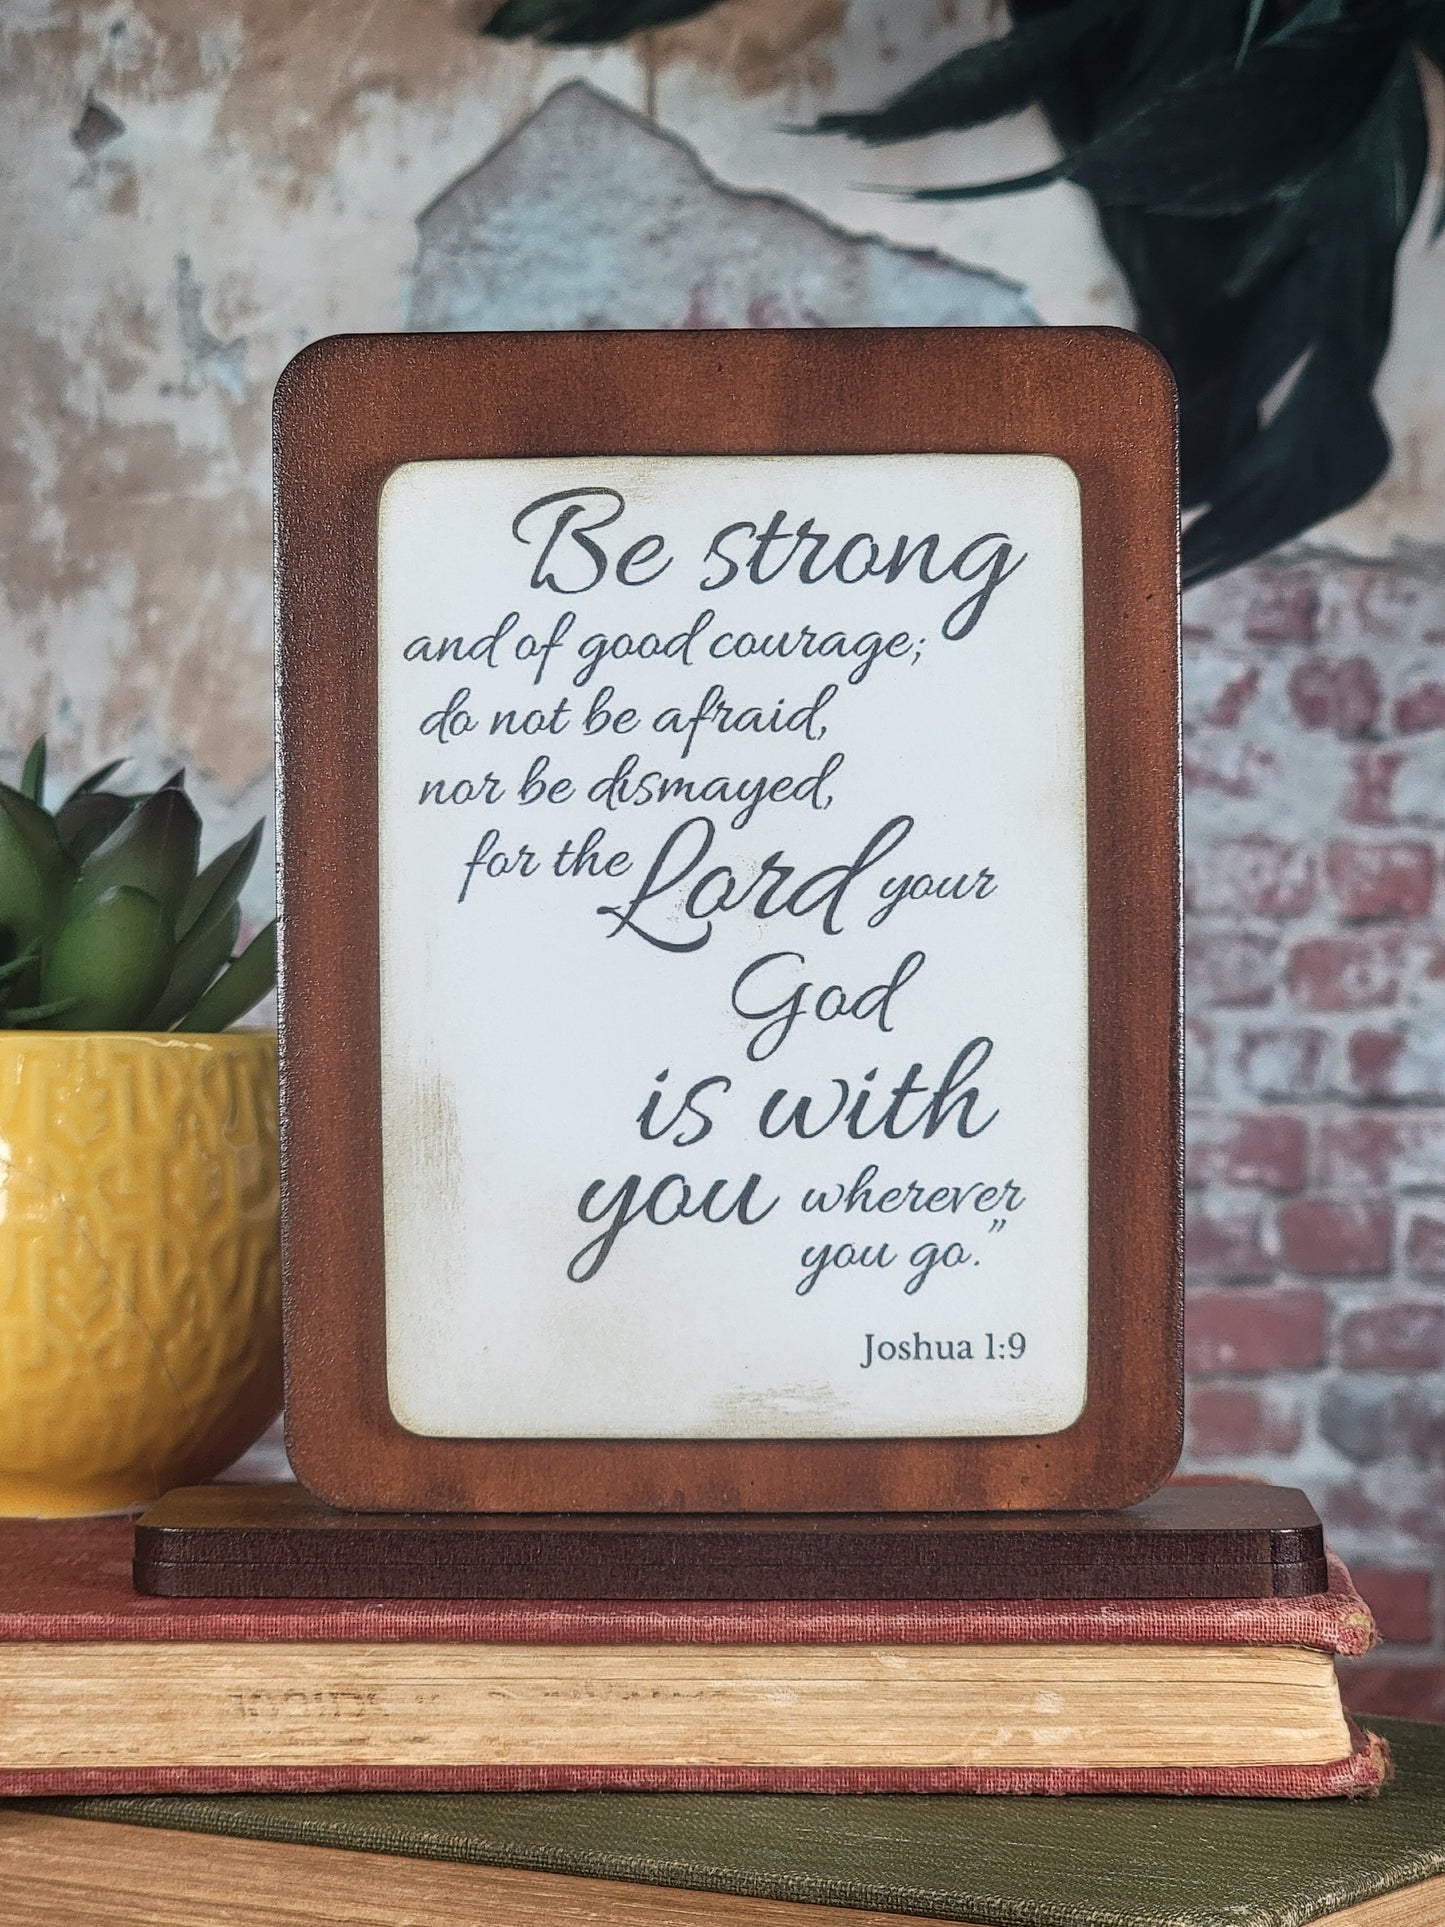 Be strong
and of good courage;
do not be afraid,
nor be dismayed,
for the Lord your
God
is with
you wherever
you go."
Joshua 1:9